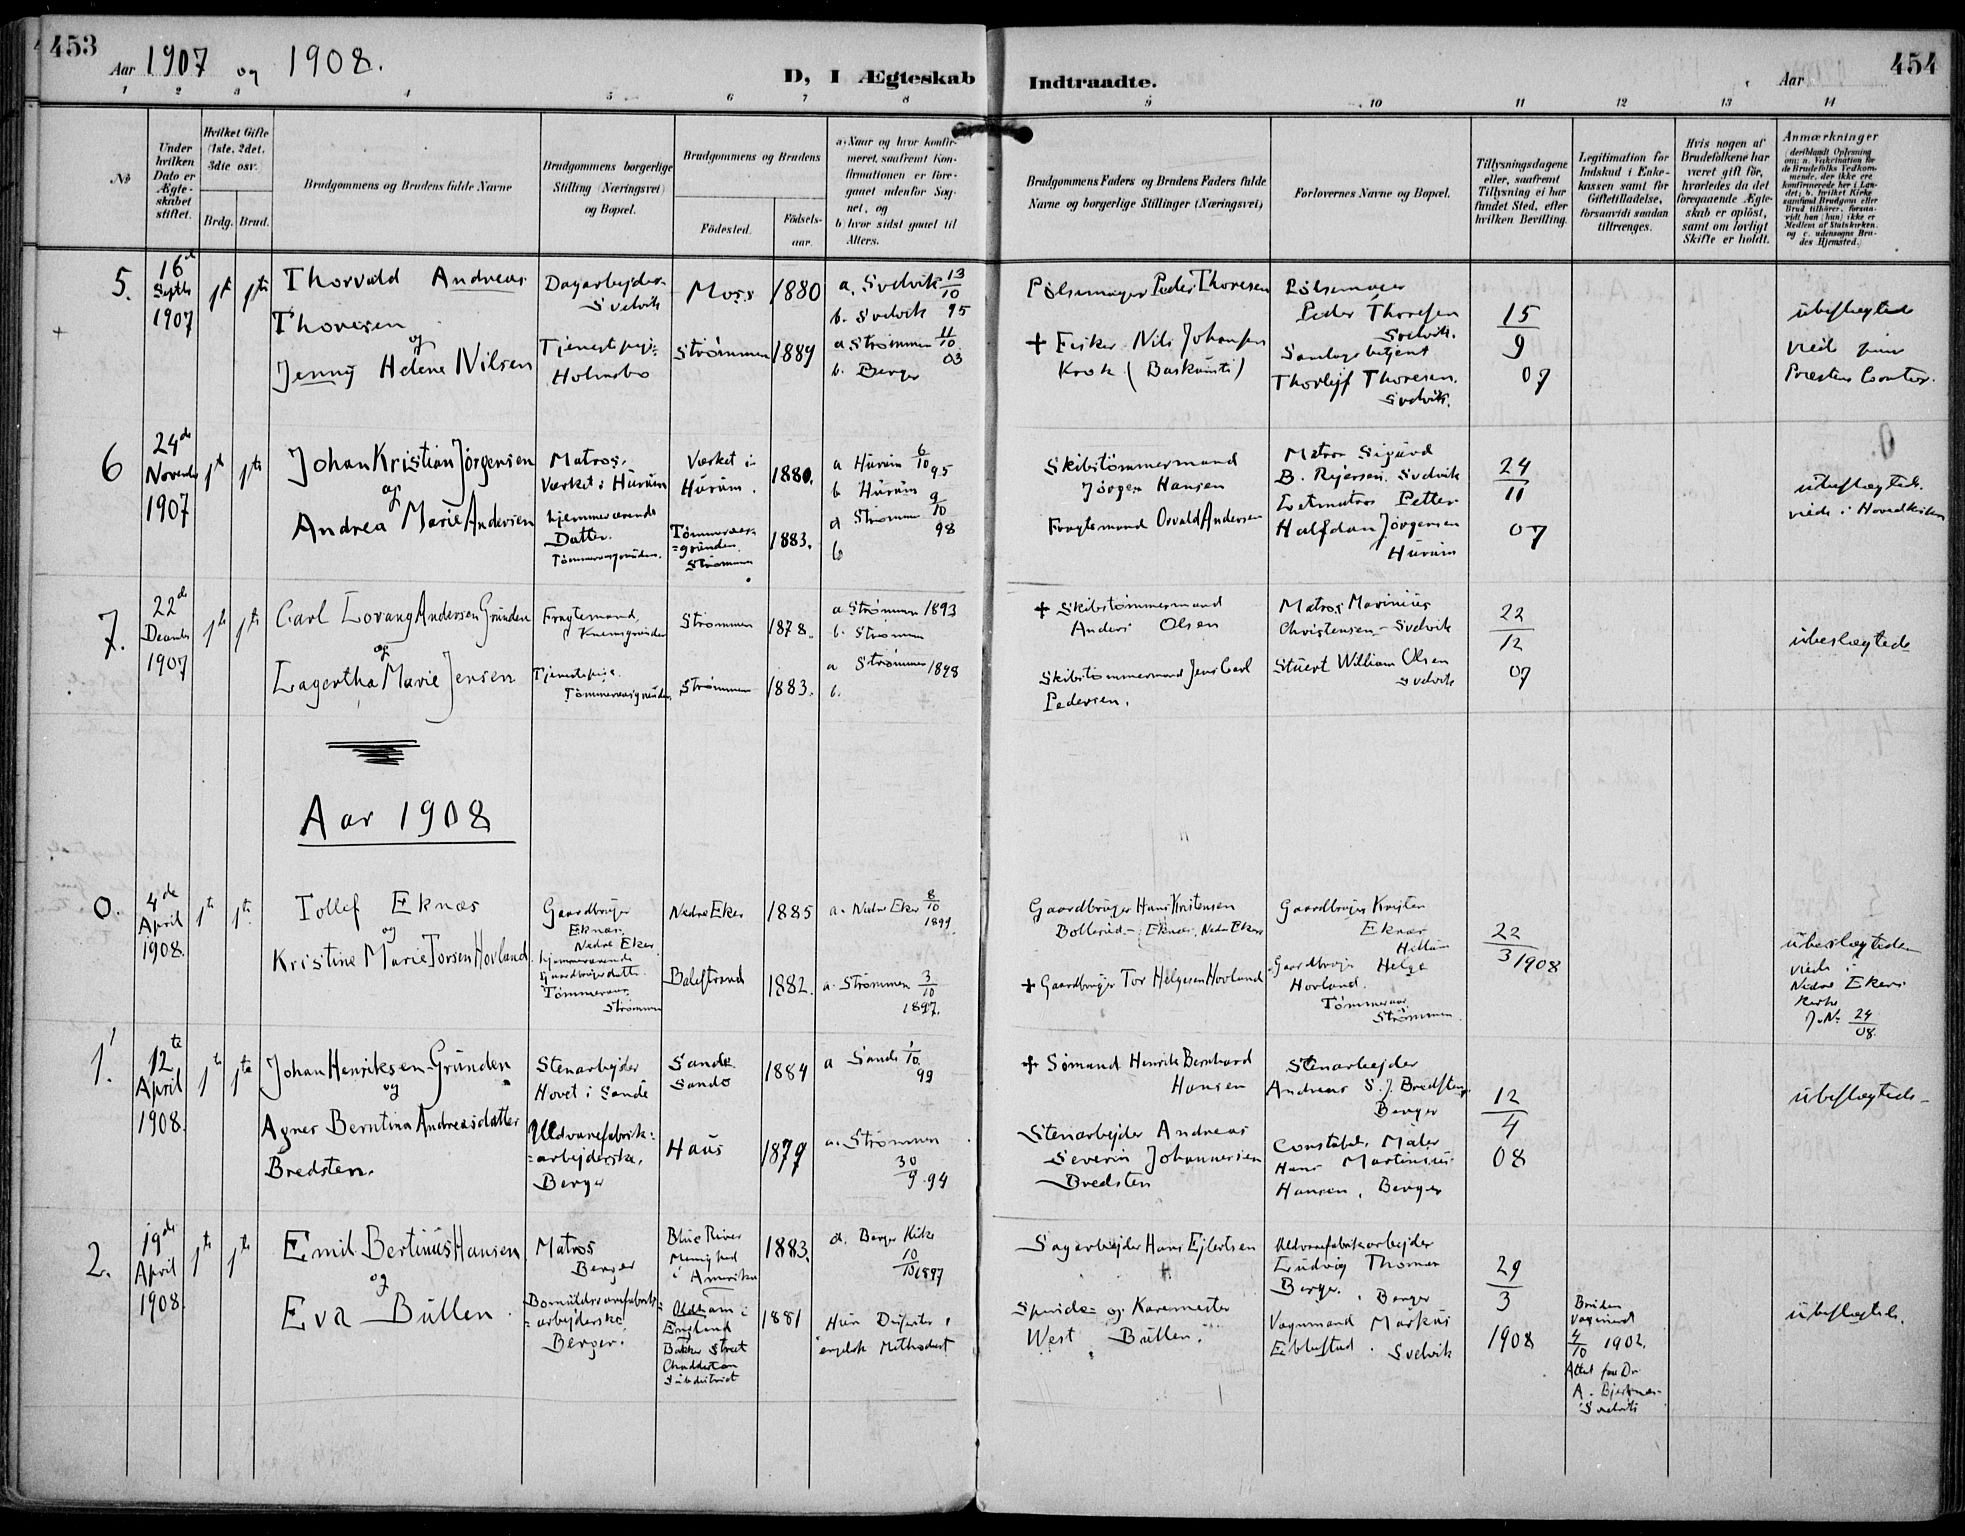 453
Aar 1907 og 1908.
D, I Ægteskab
Indtraadte.
Aar
454
1 2 3 4 5 6 7 8 9 10 11 12 13 14
No
Under hvilken Dato er Ægteskabet stiftet.
Hvilket Gifte (1ste, 2det, 3die osv.
Brdg. Brud.
Brudgommens og Brudens fulde Navne
Brudgommens borgerlige Stilling (Næringsvei) og Bopæl.
Brudgommens og Brudens
Födested.
Födsels-aar.
a) Naar og hvor konfirmeret, saafremt Konfirmationen er foregaaet udenfor Sognet, og
b) hvor sidst gaaet til Alters.
Brudgommens Faders og Brudens Faders fulde Navne og borgerlige Stillinger (Næringsvei)
Forlovernes Navne og Bopæl.
Tillysningsdagene eller, saafremt Tillysning ei har fundet Sted, efter hvilken Bevilling.
Legitimation for Indskud i Enkekassen samt for Giftetilladelse, forsaavidt saadan tiltrænges.
Hvis nogen af Brudefolkene har været gift för, hvorledes da det foregaaende Ægteskab er oplöst, samt om lovligt Skifte er holdt.
Anmærkninger
(deriblandt Oplysning om: a. Vakcination for de Brudefolks Vedkommende, der ikke ere konfirmerede her i Landet; b. hvilket Kirkesamfund Brudgom eller Brud tilhörer, forsaavidt han (hun) ikke er Medlem af Statskirken, og c. udensogns Brudes Hjemsted.)
5.
16de
Septb
1907
1ste 1ste
Thorvald Andreas
Thoresen
og
Jenny Helene Nilsen
Dagarbejder
Svelvik
Tjenestepige
Holmsbo
Moss 1880
Strømmen 1889
a. Svelvik 13/10 95
b. Svelvik
a Strømmen 11/10 03
b. Berger
Pølsemager Peder Thoresen
+ Fisker Nils Johansen
Krok
Pølsemager
Peder Thoresen
Svelvik.
Samlagsbetjent
Thorleif Thoresen.
Svelvik.
15
9
07
ubeslægtede
viede paa
Præstens Contor.
6
24de
Novemb
1907
1ste 1ste
Johan Kristian Jørgensen
og
Andrea Marie Andersen
Matros.
Værket i Hurum
hjemmeværende
Datter.
Tømmeraasgrunden.
Værket i
Hurum.
1880.
Tømmeraas=
=grunden.
Strømmen
1883.
a Hurum 6/10 95
b Hurum
a Strømmen 9/10 98
b
Skibstømmermand
Jørgen Hansen
Fragtemand Osvald Andersen
Matros Sigurd
B. Rejersen. Svelvik
Letmatros Petter
Halfdan Jørgensen
Hurum
24
11
07
ubeslægtede.
viede i Hovedkirken
7.
22de
Decemb
1907
1ste 1ste
Carl Lorang Andersen Grunden
og
Lagertha Marie Jensen
Fragtemand
Knemsgrunden
Tjenestepige.
Tømmeraasgrunden
Strømmen 1878.
Strømmen 1883.
a Strømmen 1893
b. Strømmen
a Strømmen 1898
b.
+ Skibstømmermand
Anders Olsen
Skibstømmermand Jens Carl
Pedersen.
Matros Marinius
Christensen - Svelvik
Stuert William Olsen
Svelvik
22
12
07
ubeslægtede
Aar 1908
0.
4de
April
1908.
1ste 1ste
Tollef Eknæs
og
Kristine Marie Torsen Hovland
Gaardbruger
Eknæs.
Nedre Eker
hjemmeværende
Gaardbrugerdatter.
Tømmeraas
Strømmen
Nedre Eker 1885
Balestrand 1882.
a. Nedre Eker 8/10 1899.
a. Strømmen 3/10 1897.
Gaardbruger Hans Kristensen
Bollerud - Eknæs, Nedre Eker
+ Gaardbruger Tor Helgesen Hovland
Gaardbruger Kristen
Eknæs
Gaardbruger Helge
Hovland.
Tømmeraas
Strømmen.
22
3 1908
ubeslægtede
viede i
Nedre Ekers
Kirke
J. No. 24/08.
1.
12te
April
1908.
1ste 1ste
Johan Henriksen Grunden
og
Agnes Berntina Andreasdatter
Bredsten.
Stenarbejder
Hovet i Sande
Uldvarefabrik=
=arbejderske.
Berger
Sande
Sande
1884
Haus 1879
a Sande 1/10 99
a. Strømmen
30/9 94
+ Sømand Henrik Bernhard
Hansen
Stenarbejder Andreas
Severin Johannesen
Bredsten
Stenarbejder
Andreas S. J. Bredsten
Berger
Constabel, Maler
Hans Martinius
Hansen, Berger
12
4
08
ubeslægtede
2.
19de
April
1908.
1ste 1ste
Emil Bertinius Hansen
og
Eva Bullen.
Matros
Berger
Bomuldsvarefabrik=
=arbejderske.
Berger.
Blue River
Menighed
i Amerika
1883.
Oldham i
England
Bakker Street
Chadderton
Subdistrict
1881
a. Berger Kirke
10/10 1897
Hun Dissenter,
engelsk Methodist
Sagarbejder Hans Ejlertsen
Spinde- og Karemester
West Bullen.
Uldvarefabrikarbejder
Ludvig Thomas
Berger. Berger
Vognmand Markus
Ebbestad. Svelvik
29
3
1908
Bruden
vaccineret
4/10 1902.
Attest fra Dr.
A. Bjerknes
Svelvik
ubeslægtede.